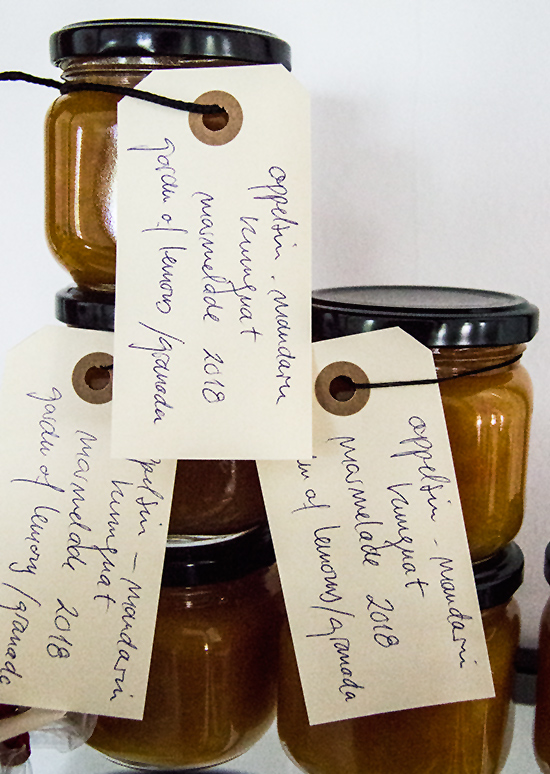 appelsin . mandarin
kumquat
marmelade 2018
garden of lemons / granada
appelsin - mandarin
kumquat
marmelade 2018
garden of lemons / granada
appelsin - mandarin
kumquat
marmelade 2018
of lemons / granada